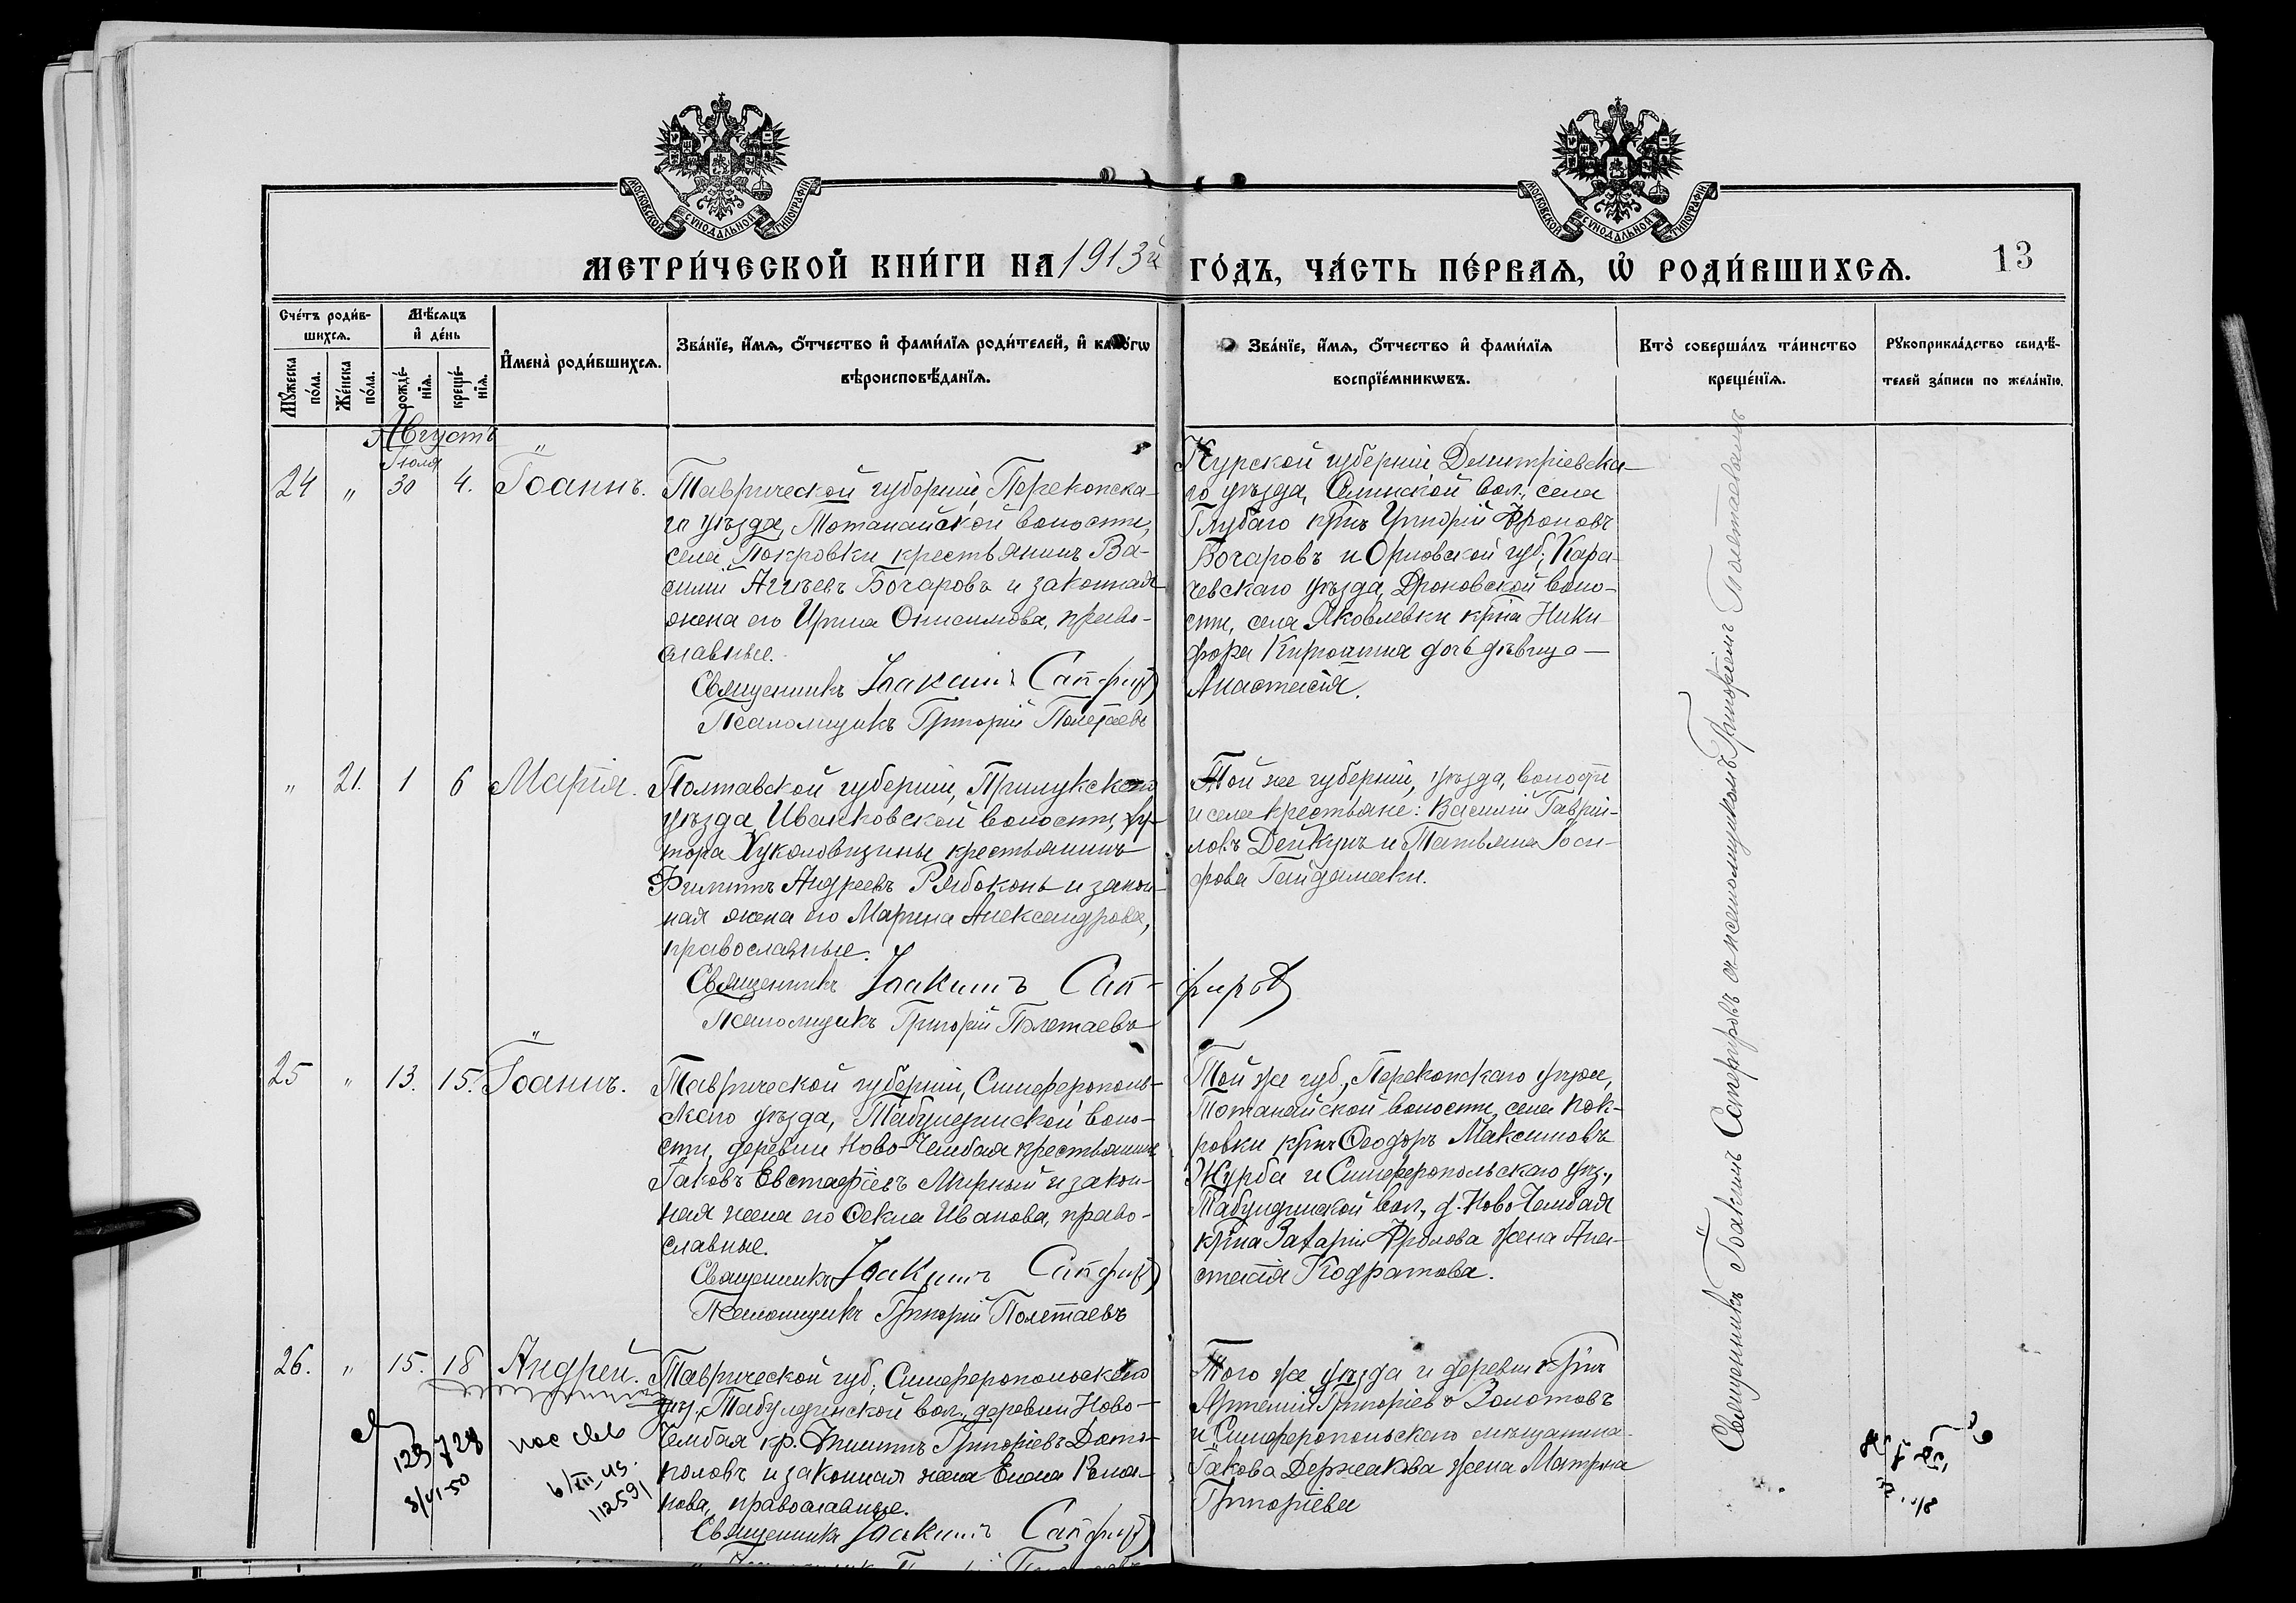 МОСКОВСКОЙ СУНОДАЛЬНОЙ ТИПОГРАФІИ
МОСКОВСКОЙ СУНОДАЛЬНОЙ ТИПОГРАФІИ
МЕТРИ́ЧЕСКОЙ КНИ́ГИ НА 1913й ГО́ДЪ, ЧА́СТЬ ПЕ́РВАЯ, Ѡ РОДИ́ВШИХСЯ.
13
Сче́тъ роди́в-
шихся.
Мѣ́сяцъ
и де́нь
Мꙋ́жеска по́ла.
Же́нска по́ла.
рожде́-
нїя.
креще́-
нїя.
Имена̀ роди́вшихся.
Зва́нїе, и́мя, о́тчество и фами́лїя роди́телей, и како́гѡ
вѣроисповѣ́данїя.
Зва́нїе, и́мя, о́тчество и фами́лїя
воспрїе́мникѡвъ.
Кто̀ соверша́лъ та́инство
креще́нїя.
Рꙋкоприкла́дство свидѣ́-
телей за́писи по жела́нїю.
Августъ
Іюля
24 " 30 4. Іоаннъ.
Таврической губерніи, Перекопска-
го уѣзда, Потанайской волости,
села Покровки крестьянинъ Ва-
силій Агѣевъ Бочаровъ и законная
жена его Ирина Онисимова, право-
славные.
Священникъ Іоакимъ Сапфир
Псаломщикъ Григорій Полетаевъ
Курской губерніи Дмитріевска-
го уѣзда, вол., села
кр-нъ Григорій Фроловъ
Бочаровъ и Орловской губ., Кара-
чевскаго уѣзда, Дроновской воло-
сти, села Яковлевки кр-на Ники-
фора дочь дѣвица
Анастасія.
" 21. 1 6 Марія.
Полтавской губерніи, Прилукскаго
уѣзда, Иваньковской волости, ху-
тора крестьянинъ
Филиппъ Андреевъ Рябоконь и закон-
ная жена его Марина Александрова,
православные.
Священникъ Іоакимъ Сап-
фиров
Псаломщикъ Григорій Полетаевъ
Той же губерніи, уѣзда, волости
и села крестьяне: Василій Гаврій-
ловъ Дейкунъ и Татьяна Іоси-
фова Гайдамаки.
25 " 13. 15. Іоаннъ.
Таврической губерніи, Симферополь-
скаго уѣзда, Табулдинской воло-
сти, деревни Ново-Чембая крестьянинъ
Іаковъ Евстафіевъ Мирный и закон-
ная жена его Ѳекла Иванова, право-
славные.
Священникъ Іоакимъ Сапфир
Псаломщикъ Григорій Полетаевъ
Той же губ., Перекопскаго уѣзда,
Потанайской волости, села Пок-
ровки кр-нъ Ѳеодоръ Максимовъ
Журба и Симферопольскаго уѣз.,
Табулдинской вол., д. Ново-Чембая
кр-на Захарія Фролова жена Ана-
стасія Кодратова.
26. " 15. 18 Андрей.
Таврической губ., Симферопольскаго
уѣз., Табулдинской вол., деревни Ново-
Чембая кр. Филиппъ Григоріевъ
и законная жена Елена Рома-
нова, православные.
Священникъ Іоакимъ Сапфир
Того же уѣзда и деревни кр-нъ
Артемій Григоріевъ Золотовъ
и Симферопольскаго мѣщанина
Іакова Держакова жена Матрона
Григоріева
Священникъ Іоакимъ Сапфировъ съ псаломщикомъ Григоріемъ Полетаевымъ
728
3/VI-50
6/XII-45.
112591